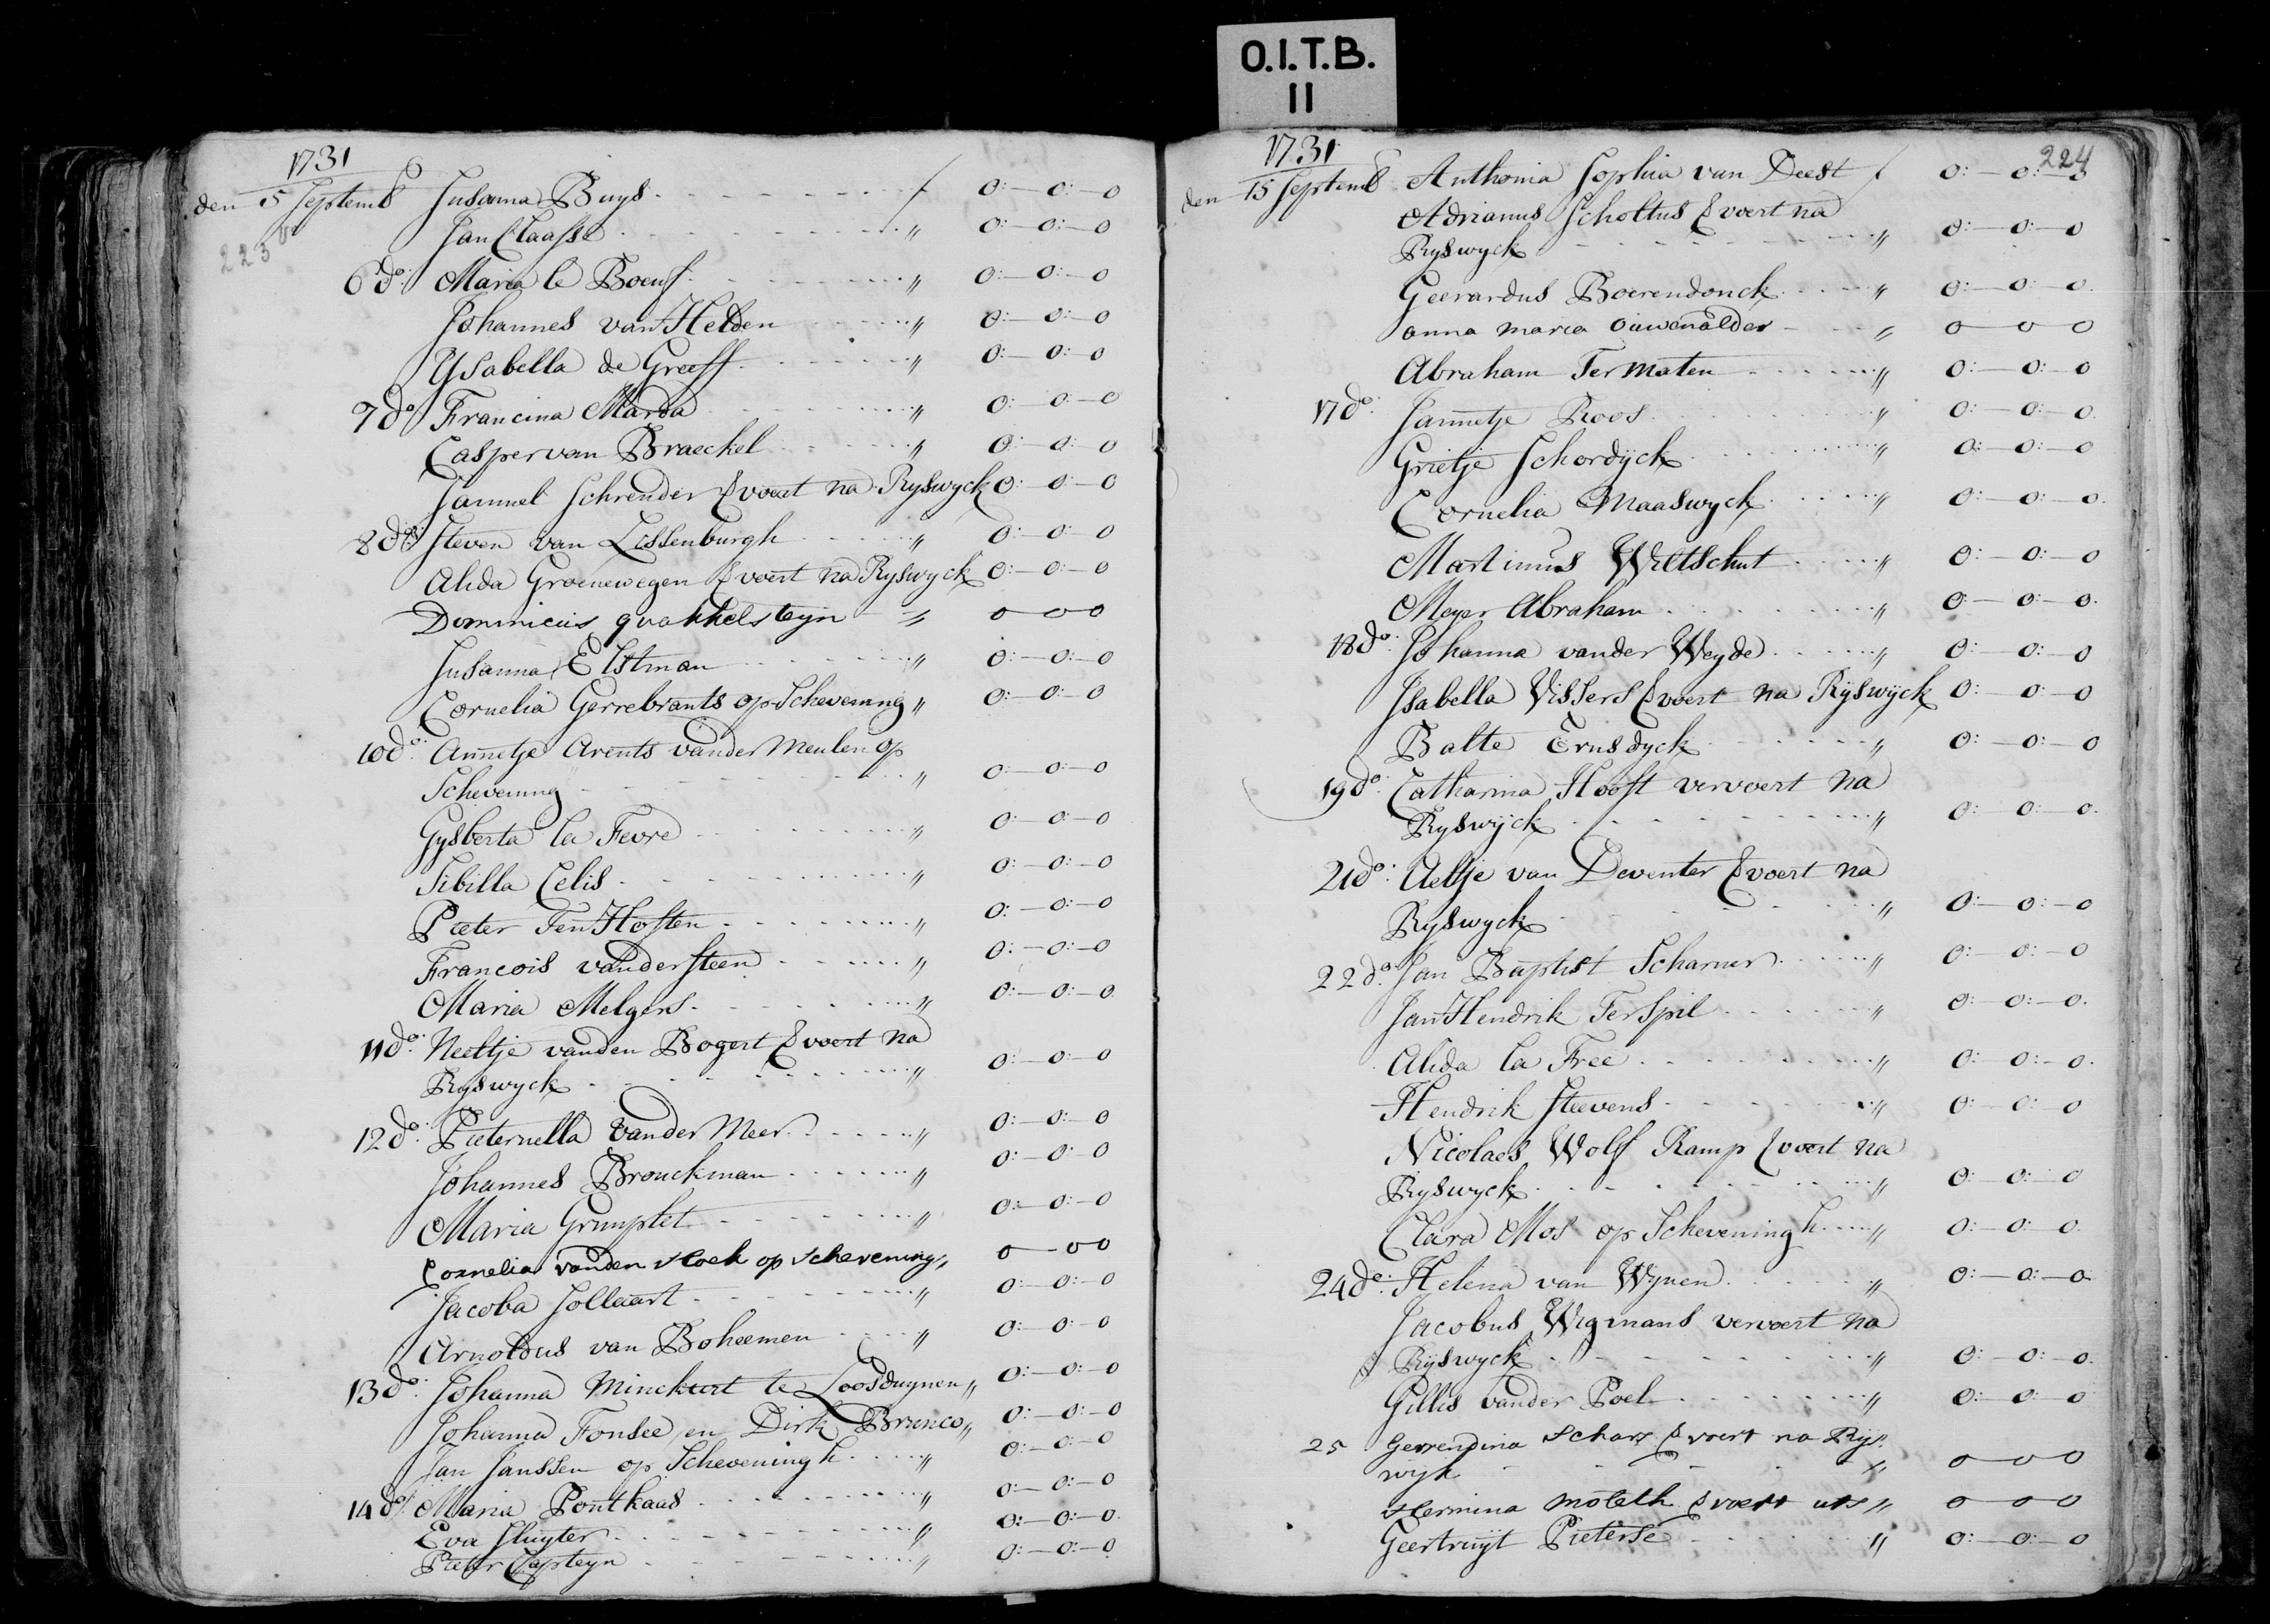 O.I.T.B.
II
1731
den 5 Septemb Susanna Buys f 0:-0:-0
223vo
Jan Claasse " 0:-0:-0
6 do: Maria le Boeuf " 0:-0:-0
Johannes van Helden " 0:-0:-0
Ysabella de Greeff " 0:-0:-0
7 do Francina Marda " 0:-0:-0
Casper van Braeckel " 0:-0:-0
Samuel Schrender vervoert na Ryswyck 0:-0:-0
8 do: Steven van Lissenburgh " 0:-0:-0
Alida Groenewegen vervoert na Ryswyck 0:-0:-0
Dominicus quakkelsteyn " 0-0-0
Susanna Elstman " 0:-0:-0
Cornelia Gerrebrants op Schevening " 0:-0:-0
10 do: Annetje Arents vander Meulen op
Schevening " 0:-0:-0
Gysberta la Fevre " 0:-0:-0
Sibilla Celis " 0:-0:-0
Pieter Ten Hoften " 0:-0:-0
Francois vander Steen " 0:-0:-0
Maria Melgers " 0:-0:-0
11 do: Neeltje vanden Bogert vervoert na
Ryswyck " 0:-0:-0
12 do: Pieternella vander Meer " 0:-0:-0
Johannes Brouckman " 0:-0:-0
Maria " 0:-0:-0
Cornelia vanden Hoek op schevening " 0-00
Jacoba Jollaart " 0:-0:-0
Arnoldus van Boheemen " 0:-0:-0
13 do: Johanna te Loosduynen " 0:-0:-0
Johanna Fonsee en Dirk Brunco " 0:-0:-0
Jan Janssen op Scheveningh " 0:-0:-0
14 do: Maria Pontkaas " 0:-0:-0
Eva Sluyter " 0:-0:-0
Pieter Capteyn " 0:-0:-0
1731
224
den 15 Septemb Anthonia Sophia van Deest f 0:-0:-0
Adrianus Scholtus vervoert na
Ryswyck " 0:-0:-0
Geerardus Boerendonck " 0:-0:-0
anna maria ouwenalder " 0-0-0
Abraham Termaten " 0:-0:-0
17 do: Jannetje Roos " 0:-0:-0
Grietje Schordyck " 0:-0:-0
Cornelia Maaswyck " 0:-0:-0
Martinus Wiltschut " 0:-0:-0
Meyer Abraham " 0:-0:-0
18 do: Johanna vander Weyde " 0:-0:-0
Isabella Vissers vervoert na Ryswyck 0:-0:-0
Balte Ernsdyck " 0:-0:-0
19 do: Catharina Hooft vervoert na
Ryswyck " 0:-0:-0
21 do: Aeltje van Deventer vervoert na
Ryswyck " 0:-0:-0
22 do: Jan Baptist Scharner " 0:-0:-0
Jan Hendrik Terspil " 0:-0:-0
Alida la Free " 0:-0:-0
Hendrik Steevens " 0:-0:-0
Nicolaes Wolf Kamp vervoert na
Ryswyck " 0:-0:-0
Clara Mos op Scheveningh " 0:-0:-0
24 do: Helena van Wynen " 0:-0:-0
Jacobus Wigmans vervoert na
Ryswyck " 0:-0:-0
Gillis vander Poel " 0:-0:-0
25 Gerrendina Schars vervoert na Rys
wyk " 0-0-0
Hermina vervoert uts " 0-0-0
Geertruyt Pieterse " 0:-0:-0